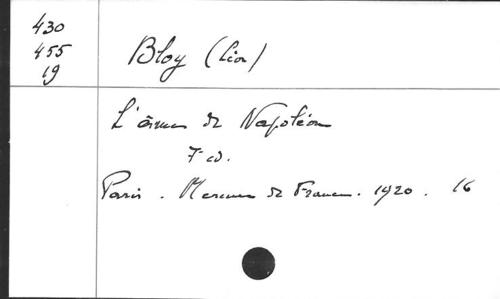 430
455
19
Bloy (Léon)
L'âme de Napoléon
7 éd.
Paris. Mercure de France. 1920. 16